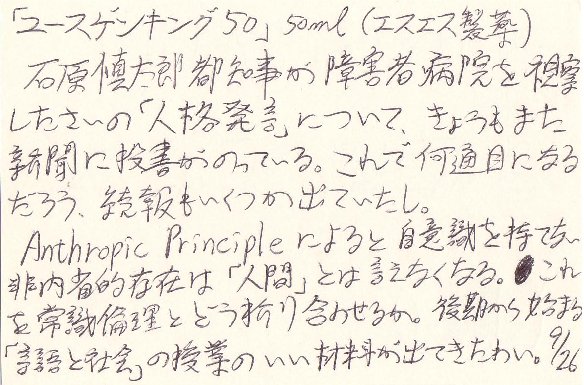 「ユースゲンキング50」50ml(エスエス製薬)
石原慎太郎都知事が障害者病院を視察
したさいの「人格発言」について、きょうもまた
新聞に投書がのっている。これで何通目になる
だろう、続報もいくつか出ていたし。
Anthropic Principleによると自意識を持てない
非内省的存在は「人間」とは言えなくなる。これ
を常識倫理とどう折り合わせるか。後期から始まる
「言語と社会」の授業のいい材料が出てきたわい。9/26